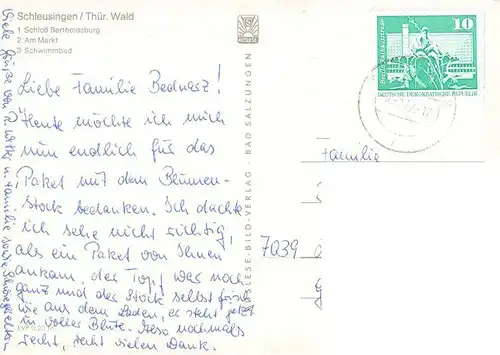 Schleusingen / Thür. Wald
1 Schloß Bertholdsburg
2 Am Markt
3 Schwimmbad
Liebe Familie Bednarz!
Heute möchte ich mich
nun endlich für das
Paket mit dem Blumen-
stock bedanken. Ich dachte
ich sehe nicht richtig,
als ein Paket von Ihnen
ankam, der Topf war noch
ganz und der Stock selbst frisch
wie aus dem Laden, er steht jetzt
in voller Blüte. Also nochmals
recht, recht vielen Dank.
Viele Grüße von
u. Familie sowie Schwiegereltern
EVP 0,20 M
AUSLESE-BILD-VERLAG - BAD SALZUNGEN
10
DEUTSCHE DEMOKRATISCHE REPUBLIK
Familie
7039